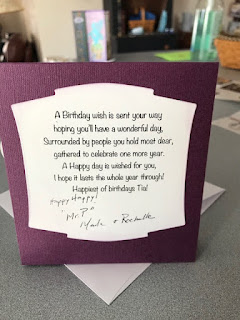 A Birthday wish is sent your way
hoping you'll have a wonderful day,
Surrounded by people you hold most dear,
gathered to celebrate one more year.
A Happy day is wished for you,
I hope it lasts the whole year through!
Happiest of birthdays Tia!
Happy Happy!
"Mr. P"
+ Rochelle